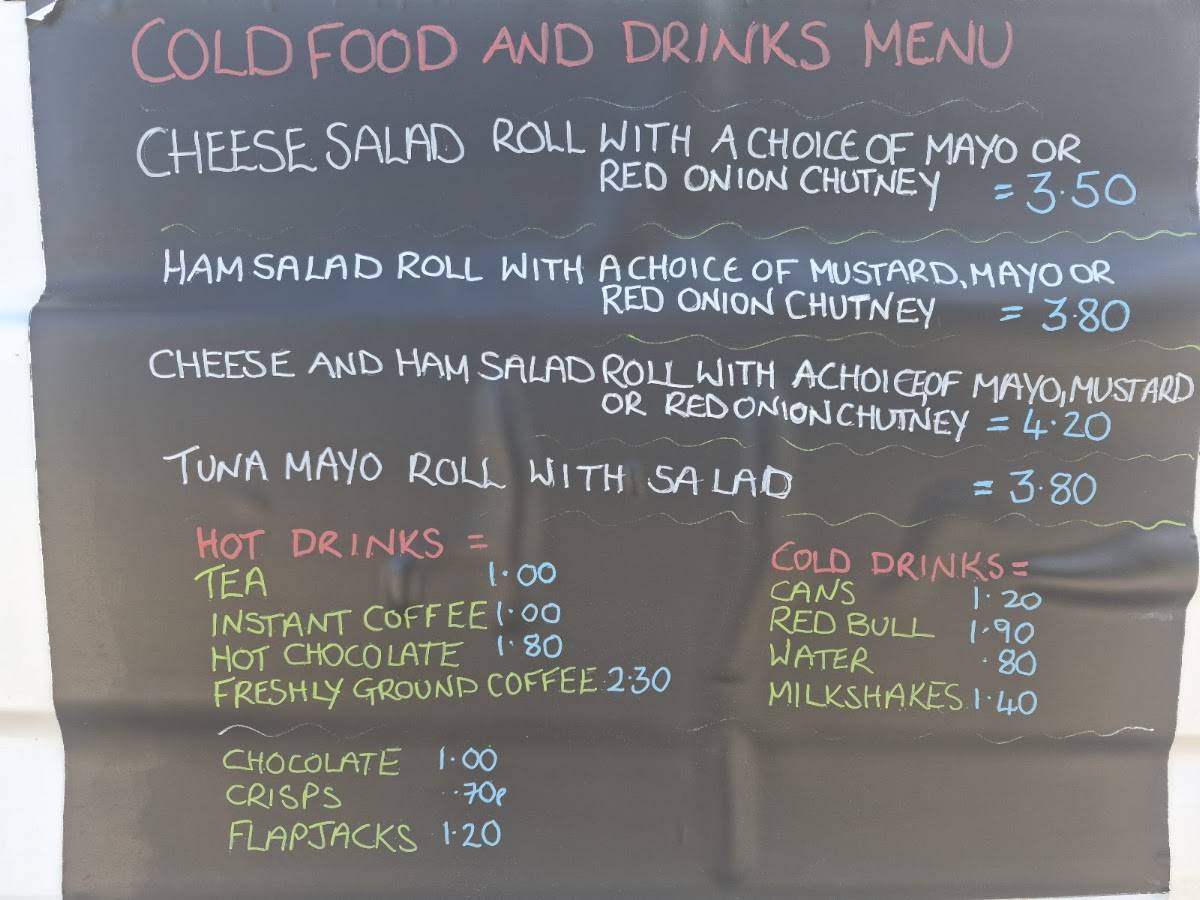 COLD FOOD AND DRINKS MENU
CHEESE SALAD ROLL WITH A CHOICE OF MAYO OR
RED ONION CHUTNEY = 3.50
HAM SALAD ROLL WITH A CHOICE OF MUSTARD, MAYO OR
RED ONION CHUTNEY = 3.80
CHEESE AND HAM SALAD ROLL WITH A CHOICE OF MAYO, MUSTARD
OR RED ONION CHUTNEY = 4.20
TUNA MAYO ROLL WITH SALAD = 3.80
HOT DRINKS =
TEA 1.00
INSTANT COFFEE 1.00
HOT CHOCOLATE 1.80
FRESHLY GROUND COFFEE 2.30
COLD DRINKS =
CANS 1.20
RED BULL 1.90
WATER .80
MILKSHAKES 1.40
CHOCOLATE 1.00
CRISPS .70p
FLAPJACKS 1.20